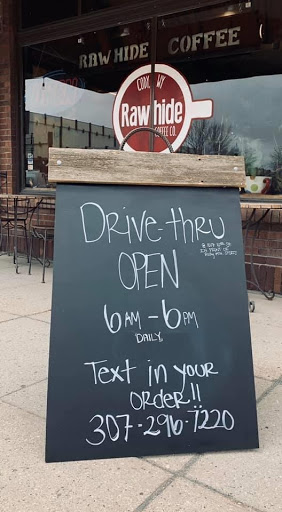 RAWHIDE COFFEE
CODY, WY
Rawhide
COFFEE CO.
DRIVE-thru
OPEN
6AM-6PM
DAILY,
Text in your
ORDER!!
307-296-7220